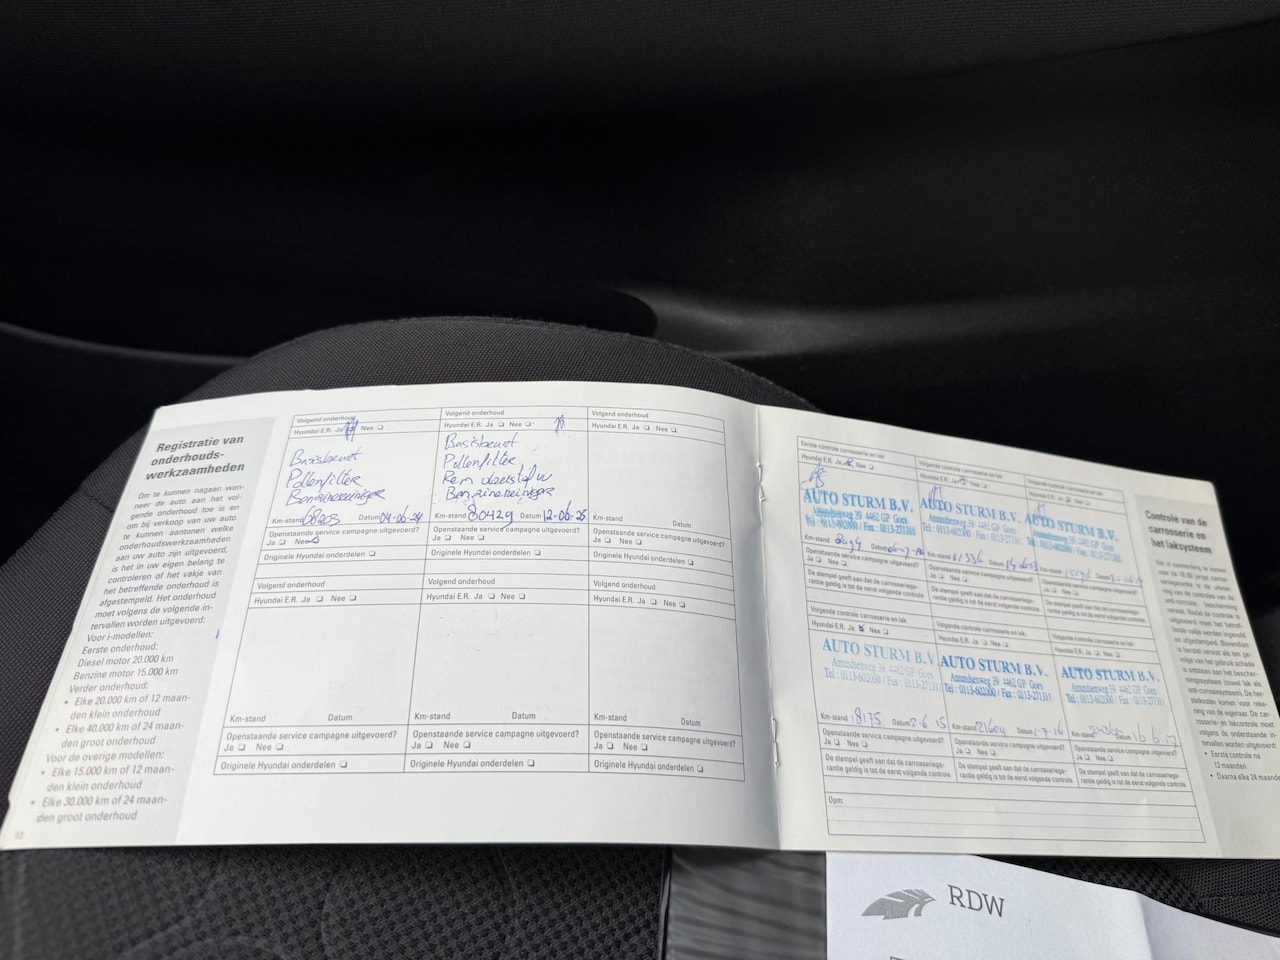 Registratie van
onderhouds-
werkzaamheden
Om te kunnen nagaan wan-
neer de auto aan het vol-
gende onderhoud toe is en
om bij verkoop van uw auto
te kunnen aantonen welke
onderhoudswerkzaamheden
aan uw auto zijn uitgevoerd,
is het in uw eigen belang te
controleren of het vakje van
het betreffende onderhoud is
afgestempeld. Het onderhoud
moet volgens de volgende in-
tervallen worden uitgevoerd:
Voor i-modellen:
Eerste onderhoud:
Diesel motor 20.000 km
Benzine motor 15.000 km
Verder onderhoud:
• Elke 20.000 km of 12 maan-
den klein onderhoud
• Elke 40.000 km of 24 maan-
den groot onderhoud
Voor de overige modellen:
• Elke 15.000 km of 12 maan-
den klein onderhoud
• Elke 30.000 km of 24 maan-
den groot onderhoud
Volgend onderhoud
Hyundai E.R. Ja Nee
Basisbeurt
Pollenfilter
Benzinereiniger
Km-stand Datum 04-06-24
Openstaande service campagne uitgevoerd?
Ja Nee
Originele Hyundai onderdelen
Volgend onderhoud
Hyundai E.R. Ja Nee
Basisbeurt
Pollenfilter
Rem vloeistof
Benzinereiniger
Km-stand 80429 Datum 12-06-25
Openstaande service campagne uitgevoerd?
Ja Nee
Originele Hyundai onderdelen
Volgend onderhoud
Hyundai E.R. Ja Nee
Km-stand Datum
Openstaande service campagne uitgevoerd?
Ja Nee
Originele Hyundai onderdelen
Volgend onderhoud
Hyundai E.R. Ja Nee
Km-stand Datum
Openstaande service campagne uitgevoerd?
Ja Nee
Originele Hyundai onderdelen
Volgend onderhoud
Hyundai E.R. Ja Nee
Km-stand Datum
Openstaande service campagne uitgevoerd?
Ja Nee
Originele Hyundai onderdelen
Volgend onderhoud
Hyundai E.R. Ja Nee
Km-stand Datum
Openstaande service campagne uitgevoerd?
Ja Nee
Originele Hyundai onderdelen
Eerste controle carrosserie en lak
Hyundai E.R. Ja Nee
AUTO STURM B.V.
Amundsenweg 39 4462 GP Goes
Tel : 0113-602000 / Fax : 0113-271311
Km-stand Datum
Openstaande service campagne uitgevoerd?
Ja Nee
De stempel geeft aan dat de carrosseriega-
rantie geldig is tot de eerst volgende controle
Volgende controle carrosserie en lak
Hyundai E.R. Ja Nee
AUTO STURM B.V.
Amundsenweg 39 4462 GP Goes
Tel : 0113-602000 / Fax : 0113-271311
Km-stand Datum
Openstaande service campagne uitgevoerd?
Ja Nee
De stempel geeft aan dat de carrosseriega-
rantie geldig is tot de eerst volgende controle
Volgende controle carrosserie en lak
Hyundai E.R. Ja Nee
AUTO STURM B.V.
Km-stand Datum
Openstaande service campagne uitgevoerd?
Ja Nee
De stempel geeft aan dat de carrosseriega-
rantie geldig is tot de eerst volgende controle
Volgende controle carrosserie en lak
Hyundai E.R. Ja Nee
AUTO STURM B.V.
Amundsenweg 39 4462 GP Goes
Tel : 0113-602000 / Fax : 0113-271311
Km-stand 18175 Datum 2-6-15
Openstaande service campagne uitgevoerd?
Ja Nee
De stempel geeft aan dat de carrosseriega-
rantie geldig is tot de eerst volgende controle
Volgende controle carrosserie en lak
Hyundai E.R. Ja Nee
AUTO STURM B.V.
Amundsenweg 39 4462 GP Goes
Tel : 0113-602000 / Fax : 0113-271311
Km-stand 21604 Datum 1-7-16
Openstaande service campagne uitgevoerd?
Ja Nee
De stempel geeft aan dat de carrosseriega-
rantie geldig is tot de eerst volgende controle
Volgende controle carrosserie en lak
Hyundai E.R. Ja Nee
AUTO STURM B.V.
Amundsenweg 39 4462 GP Goes
Km-stand Datum
Openstaande service campagne uitgevoerd?
Ja Nee
De stempel geeft aan dat de carrosseriega-
rantie geldig is tot de eerst volgende controle
Opm:
Controle van de
carrosserie en
het laksysteem
• Eerste controle na
12 maanden
• Daarna elke 24 maanden
RDW